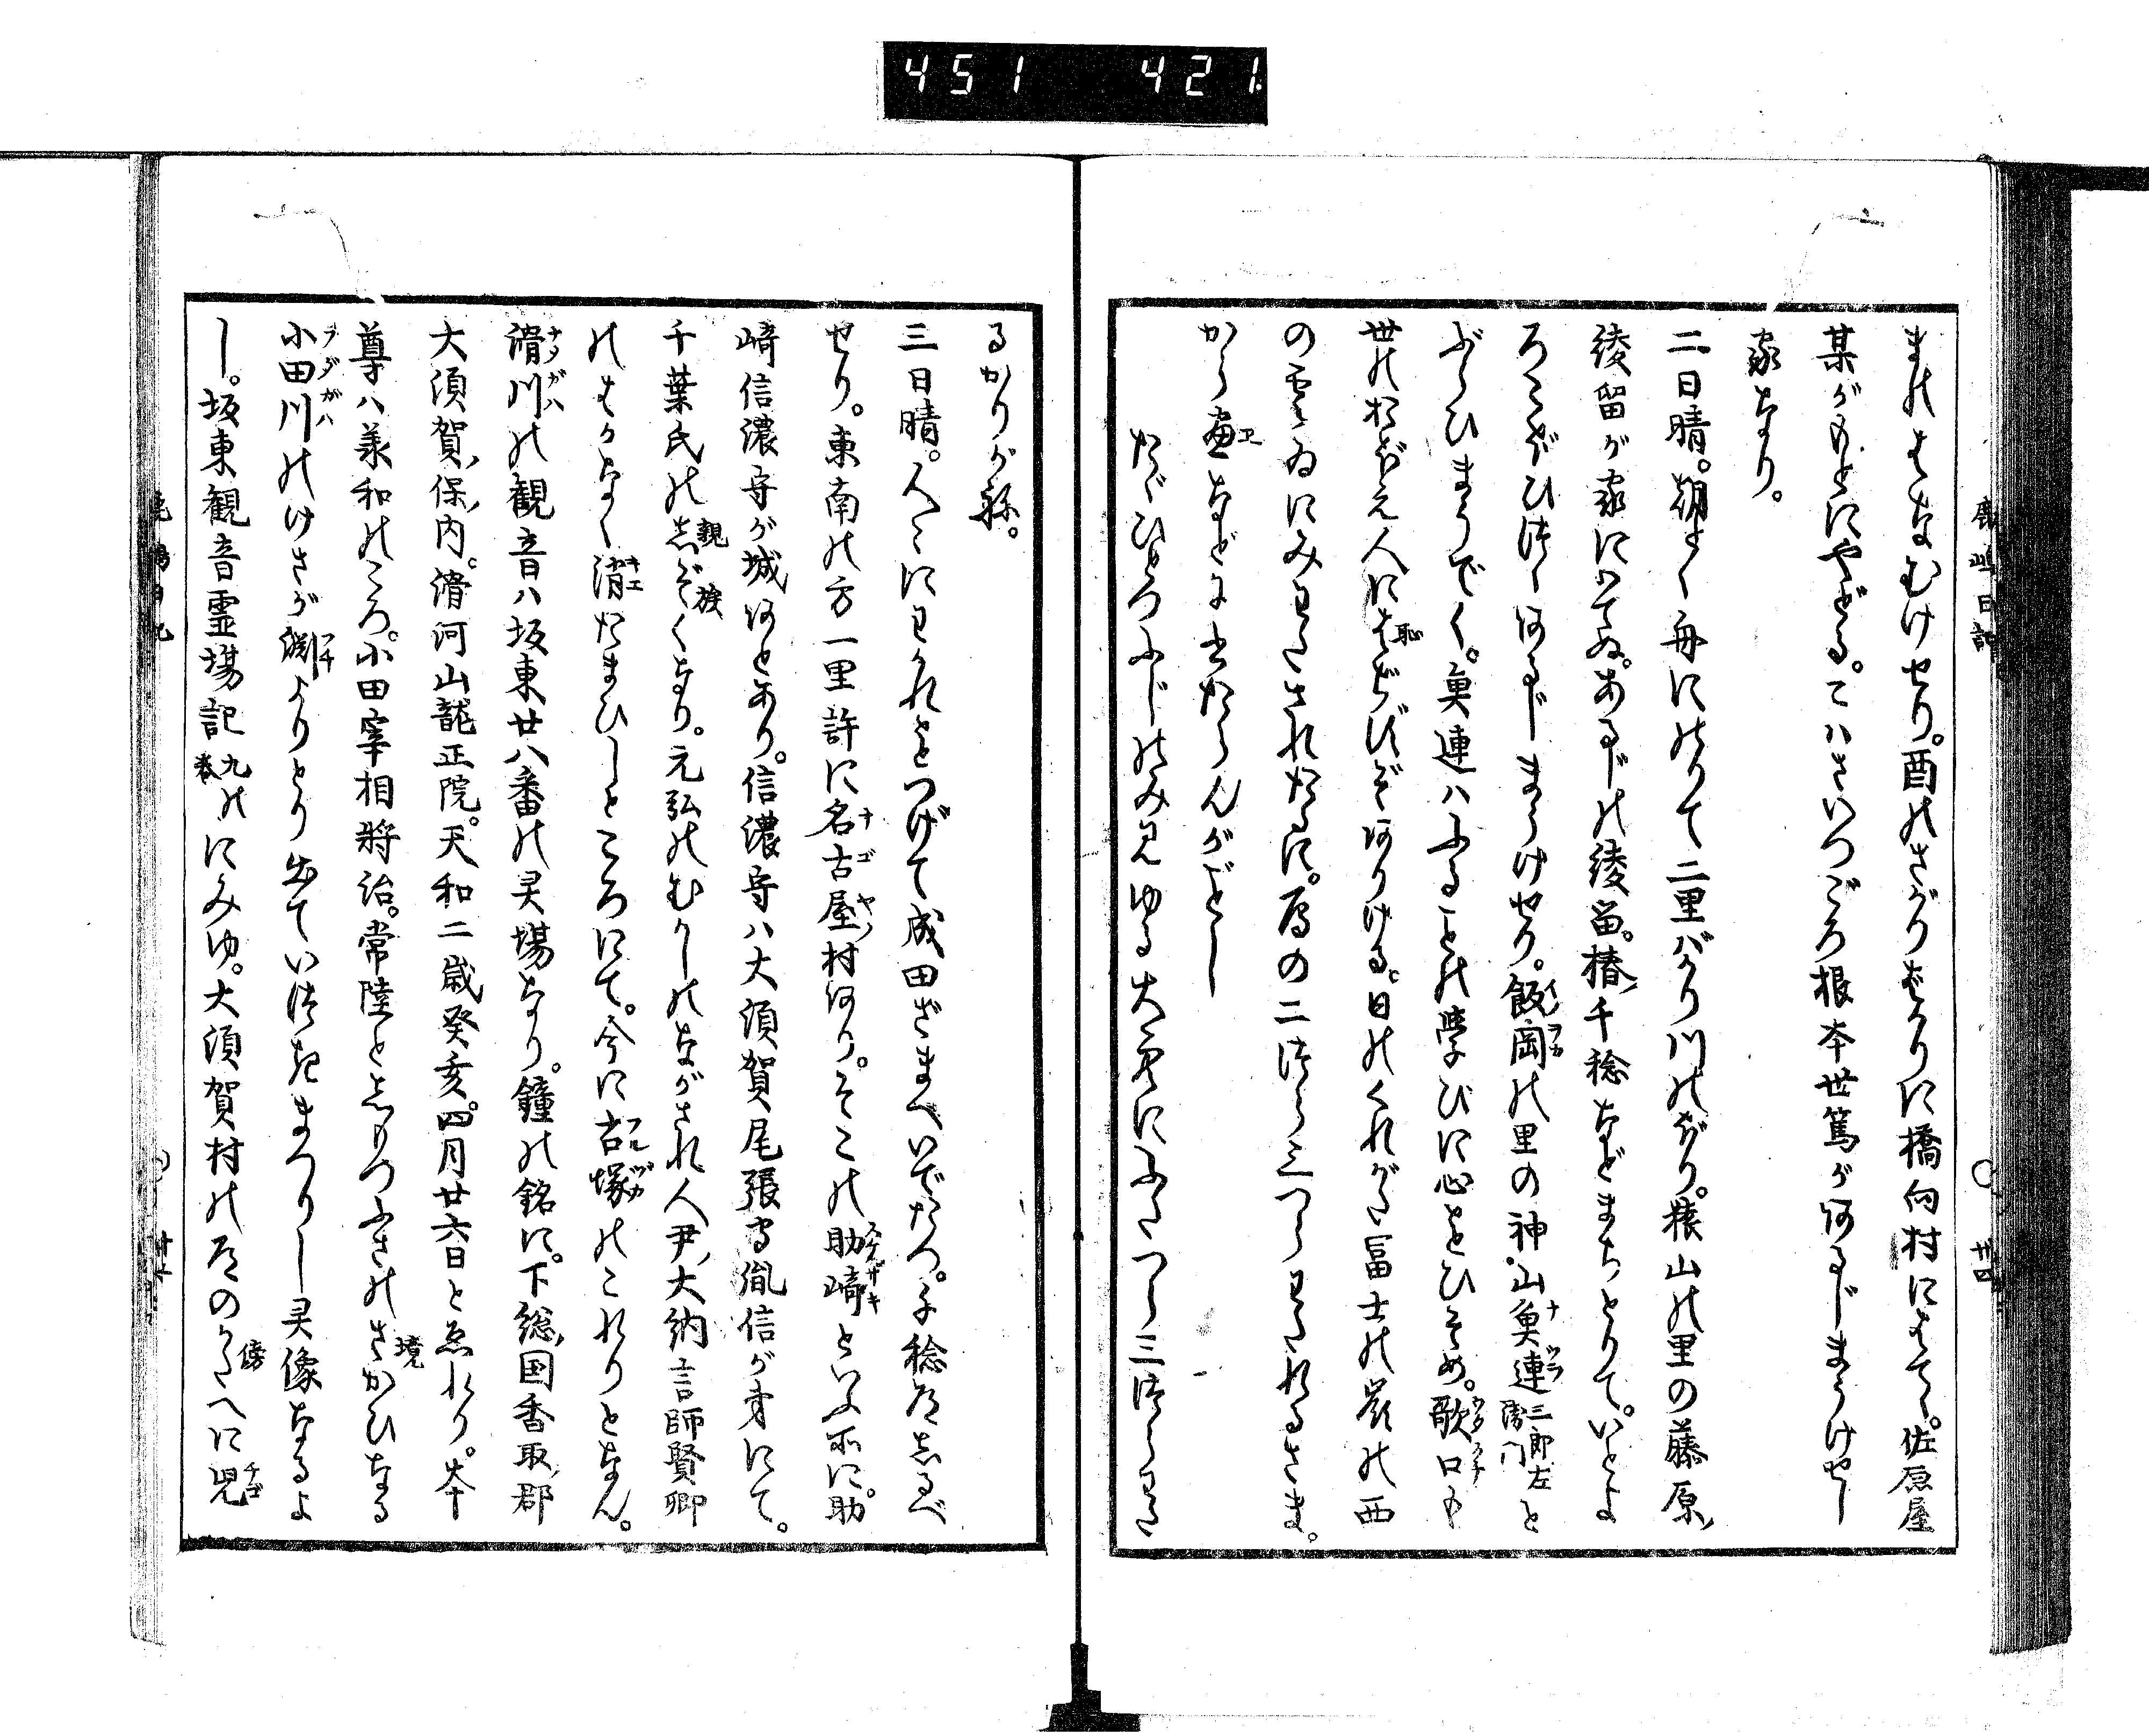 451 421
鹿嶋日記
まのはなむけせり。酉のさがりばかりに橋向村にはて。佐原屋
某がもとにやどる。こハさいつごろ根本世篤があるじまうけせし
家なり。
二日晴。朝とく舟にのりて二里ばかり川のぼり。猿山の里の藤原、
綾留が家にはてぬ。あるじの綾留。椿、千稔などまちとりて。いとよ
ろこぼひつゝあるじまうけせり。飯岡の里の神、山魚連三郎左衛門と
ぶらひまうでく。魚連ハふることの学びに心をひそめ。歌口も
世のおぼえ人にはぢずぞありける。日のくれがた冨士の嶺の西
の雲ゐにみわたされたるに。雁の二つら三つらわたれるさま。
から画などに出たらんがごとし
たぐひなきふじのみ見ゆる大空にふたつら三つらわた
るかりが録。
三日晴。人々にわかれをつげて成田ざまへいでたつ。千稔道しるべ
せり。東南の方一里許に名古屋村あり。そこの助崎といふ所に。助
崎信濃守が城あとあり。信濃守ハ大須賀尾張守胤信が弟にて。
千葉氏の親族しぞくなり。元弘のむかしのながされ人尹、大納言師賢卿
のはかなく消たまひしところにて。今に古塚のこれりとなん。
滑川の観音ハ坂東廿八番の灵場なり。鐘の銘に。下総、国香取、郡
大須賀、保、内。滑河山龍正院。天和二歳癸亥。四月廿六日とゑれり。本
尊ハ美和のころ。小田宰相將治。常陸としもつふさの境さかひなる
小田川のけさが淵よりとり出ていつきまつりし灵像なるよ
し。坂東観音霊場記九の巻にみゆ。大須賀村の道の傍かたへに児